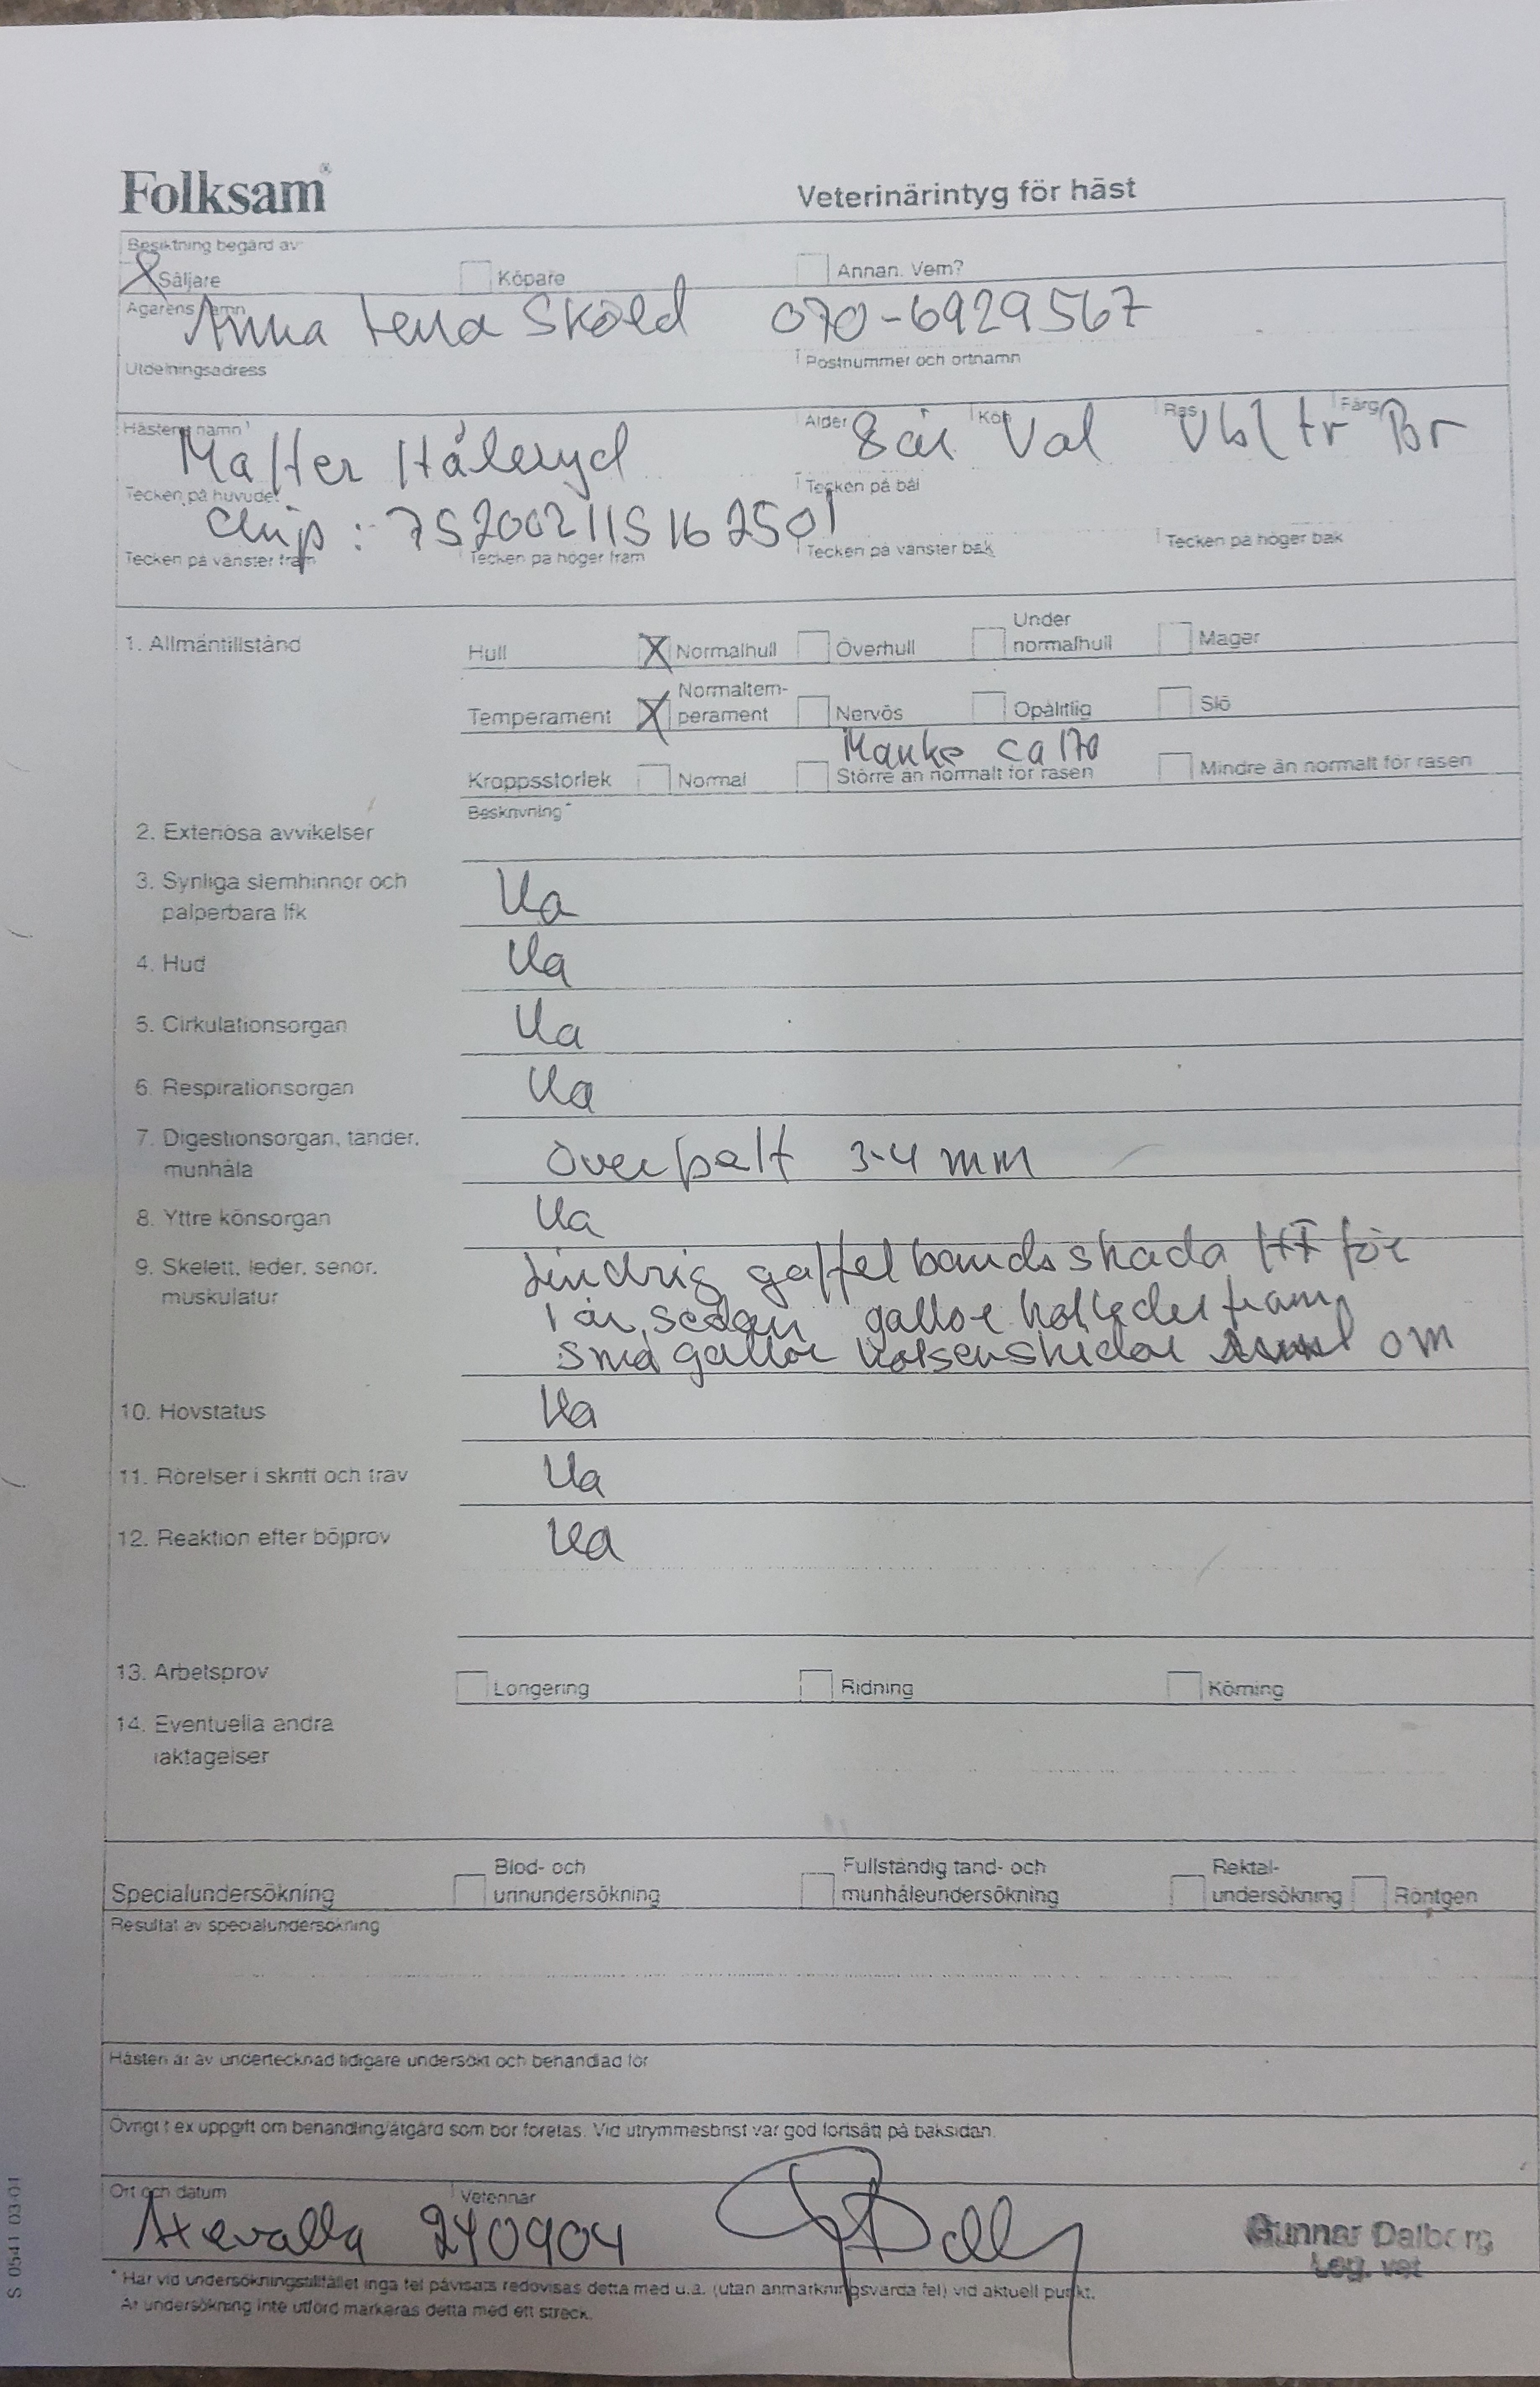 Folksam®
Veterinärintyg för häst
Besiktning begärd av
X Säljare Köpare Annan. Vem?
Ägarens namn
Anna Lena Sköld 070-6929567
Utdelningsadress Postnummer och ortnamn
Hästens namn Ålder Kön Ras Färg
Master Håleryd 8 år Val Vbl tr Br
Tecken på huvudet Tecken på bål
Chip: 752002115162501
Tecken på vänster fram Tecken på höger fram Tecken på vänster bak Tecken på höger bak
1. Allmäntillstånd Hull X Normalhull Överhull Under normalhull Mager
Temperament X Normaltem-
perament Nervös Opålitlig Slö
Manke ca 170
Kroppsstorlek Normal Större än normalt för rasen Mindre än normalt för rasen
Beskrivning*
2. Exteriösa avvikelser
3. Synliga slemhinnor och
palperbara lfk Ua
4. Hud Ua
5. Cirkulationsorgan Ua
6. Respirationsorgan Ua
7. Digestionsorgan, tänder,
munhåla Överbett 3-4 mm
8. Yttre könsorgan Ua
9. Skelett, leder, senor,
muskulatur
Lindrig gaffelbandsskada HF för
1 år sedan gallor kotleder fram
små gallor hassenskidor om
10. Hovstatus Ua
11. Rörelser i skritt och trav Ua
12. Reaktion efter böjprov Ua
13. Arbetsprov Longering Ridning Körning
14. Eventuella andra
iakttagelser
Specialundersökning Blod- och
urinundersökning Fullständig tand- och
munhåleundersökning Rektal-
undersökning Röntgen
Resultat av specialundersökning
Hästen är av undertecknad tidigare undersökt och behandlad för
Övrigt t ex uppgift om behandling/åtgärd som bör företas. Vid utrymmesbrist var god fortsätt på baksidan.
Ort och datum Veterinär
Axevalla 240904
Gunnar Dalborg
Leg. vet
* Har vid undersökningstillfället inga fel påvisats redovisas detta med u.a. (utan anmärkningsvärda fel) vid aktuell punkt.
Är undersökning inte utförd markeras detta med ett streck.
S 0541 03 01